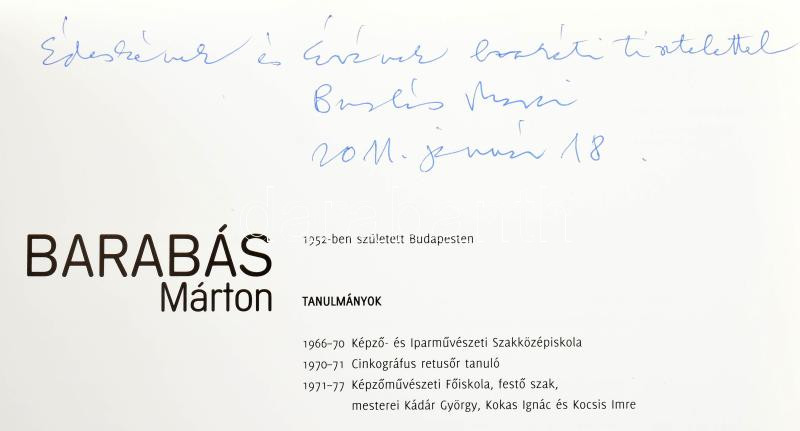 és Évának baráti tisztelettel
Barabás Marci
2011. január 18.
BARABÁS
Márton
1952-ben született Budapesten
TANULMÁNYOK
1966–70 Képző- és Iparművészeti Szakközépiskola
1970–71 Cinkográfus retusőr tanuló
1971–77 Képzőművészeti Főiskola, festő szak,
mesterei Kádár György, Kokas Ignác és Kocsis Imre